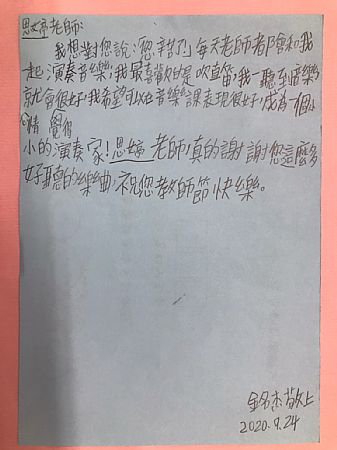 思婷老師:
我想對您說:「您辛苦了」每天老師都會和我一
起演奏音樂,我最喜歡的是吹直笛,我一聽到音樂
就會很好,我希望可以在音樂課表現很好,成為一個小
心情 覺得
小的演奏家!思婷老師,真的謝謝您這麼多
好聽的樂曲,祝您教師節快樂。
銘杰敬上
2020.9.24